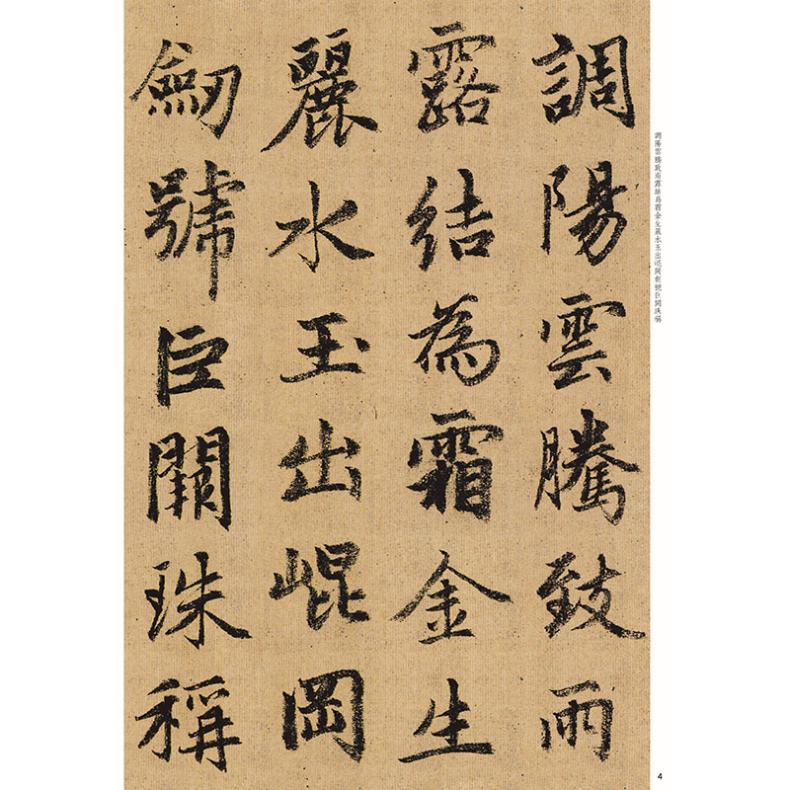 調陽雲騰致雨露結爲霜金生麗水玉出崐岡劍號巨闕珠稱
調陽雲騰致雨
露結為霜金生
麗水玉出崐岡
劒號巨闕珠稱
4